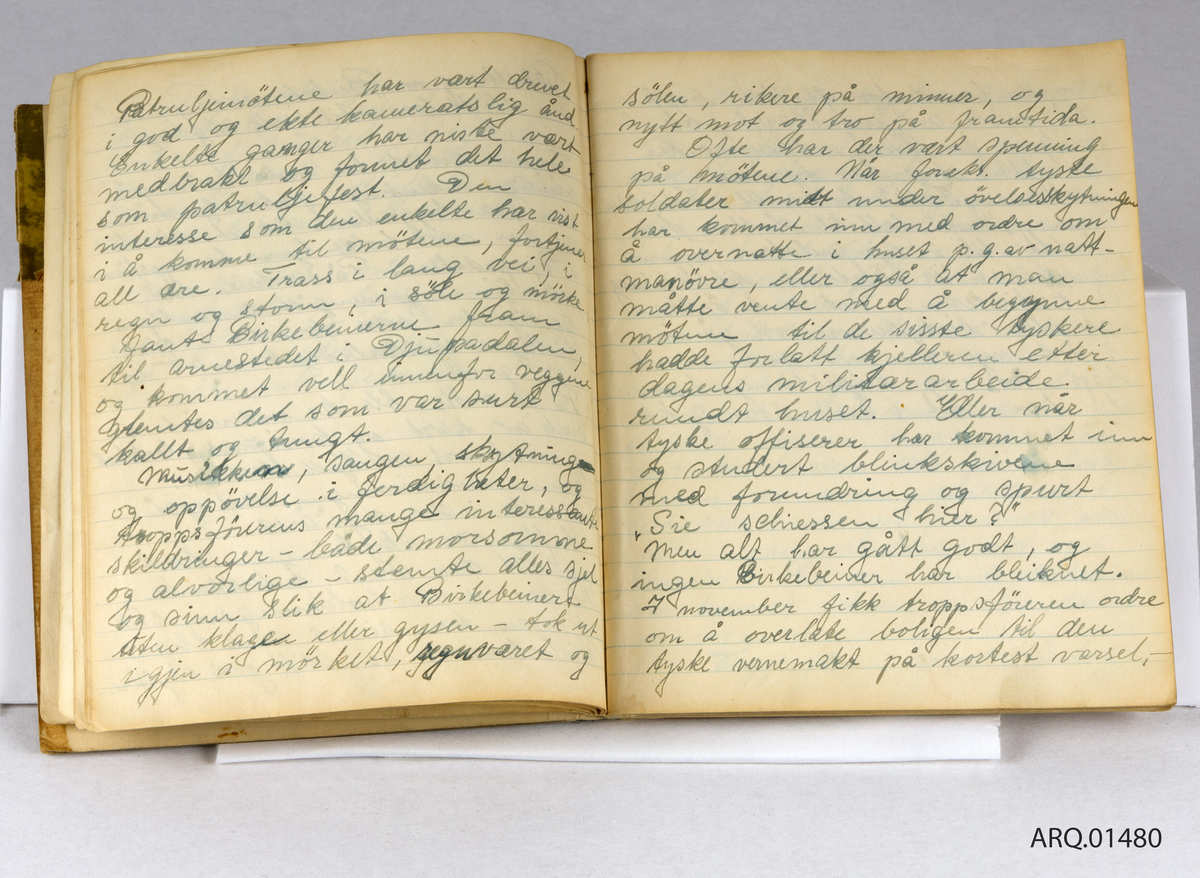 Patruljemötene har vært drevet
i god og ekte kameratslig ånd
Enkelte ganger har niste vært
medbrakt og formet det hele
som patruljefest. Den
interesse som den enkelte har vist
i å komme til mötene, fortjener
all ære. Trass i lang vei, i
regn og storm, i söle og mörke
fant Birkebeinerne fram
til arnestedet i Djupadalen,
og kommet vell innafor veggene
glemtes det som var surt
kallt og tungt.
Musikken, sangen skytning
og oppövelse i ferdigheter, og
troppsförerens mange interessante
skildringer – både morsomme
og alvorlige – stemte alles sjel
og sinn slik at Birkebeinert
uten klage eller gysen – tok ut
igjen i mörket, regnværet og
sölen, rikere på minner, og
nytt mot og tro på framtida.
Ofte har der vært spenning
på mötene. Når f.eks. tyske
soldater midt under övelsesskytningen
har kommet inn med ordre om
å overnatte i huset p.g.av natt-
manövre, eller også at man
måtte vente med å begynne
möten til de sisste tyskere
hadde forlatt kjelleren etter
dagens militärarbeide
rundt huset. Eller når
tyske offiserer har kommet inn
og studert blinkskivene
med forundring og spurt
"Sie schiessen hier?"
Men alt har gått godt, og
ingen Birkebeiner har bleiknet.
I november fikk troppsföreren ordre
om å overlate boligen til den
tyske vernemakt på kortest varsel,–
ARQ.01480